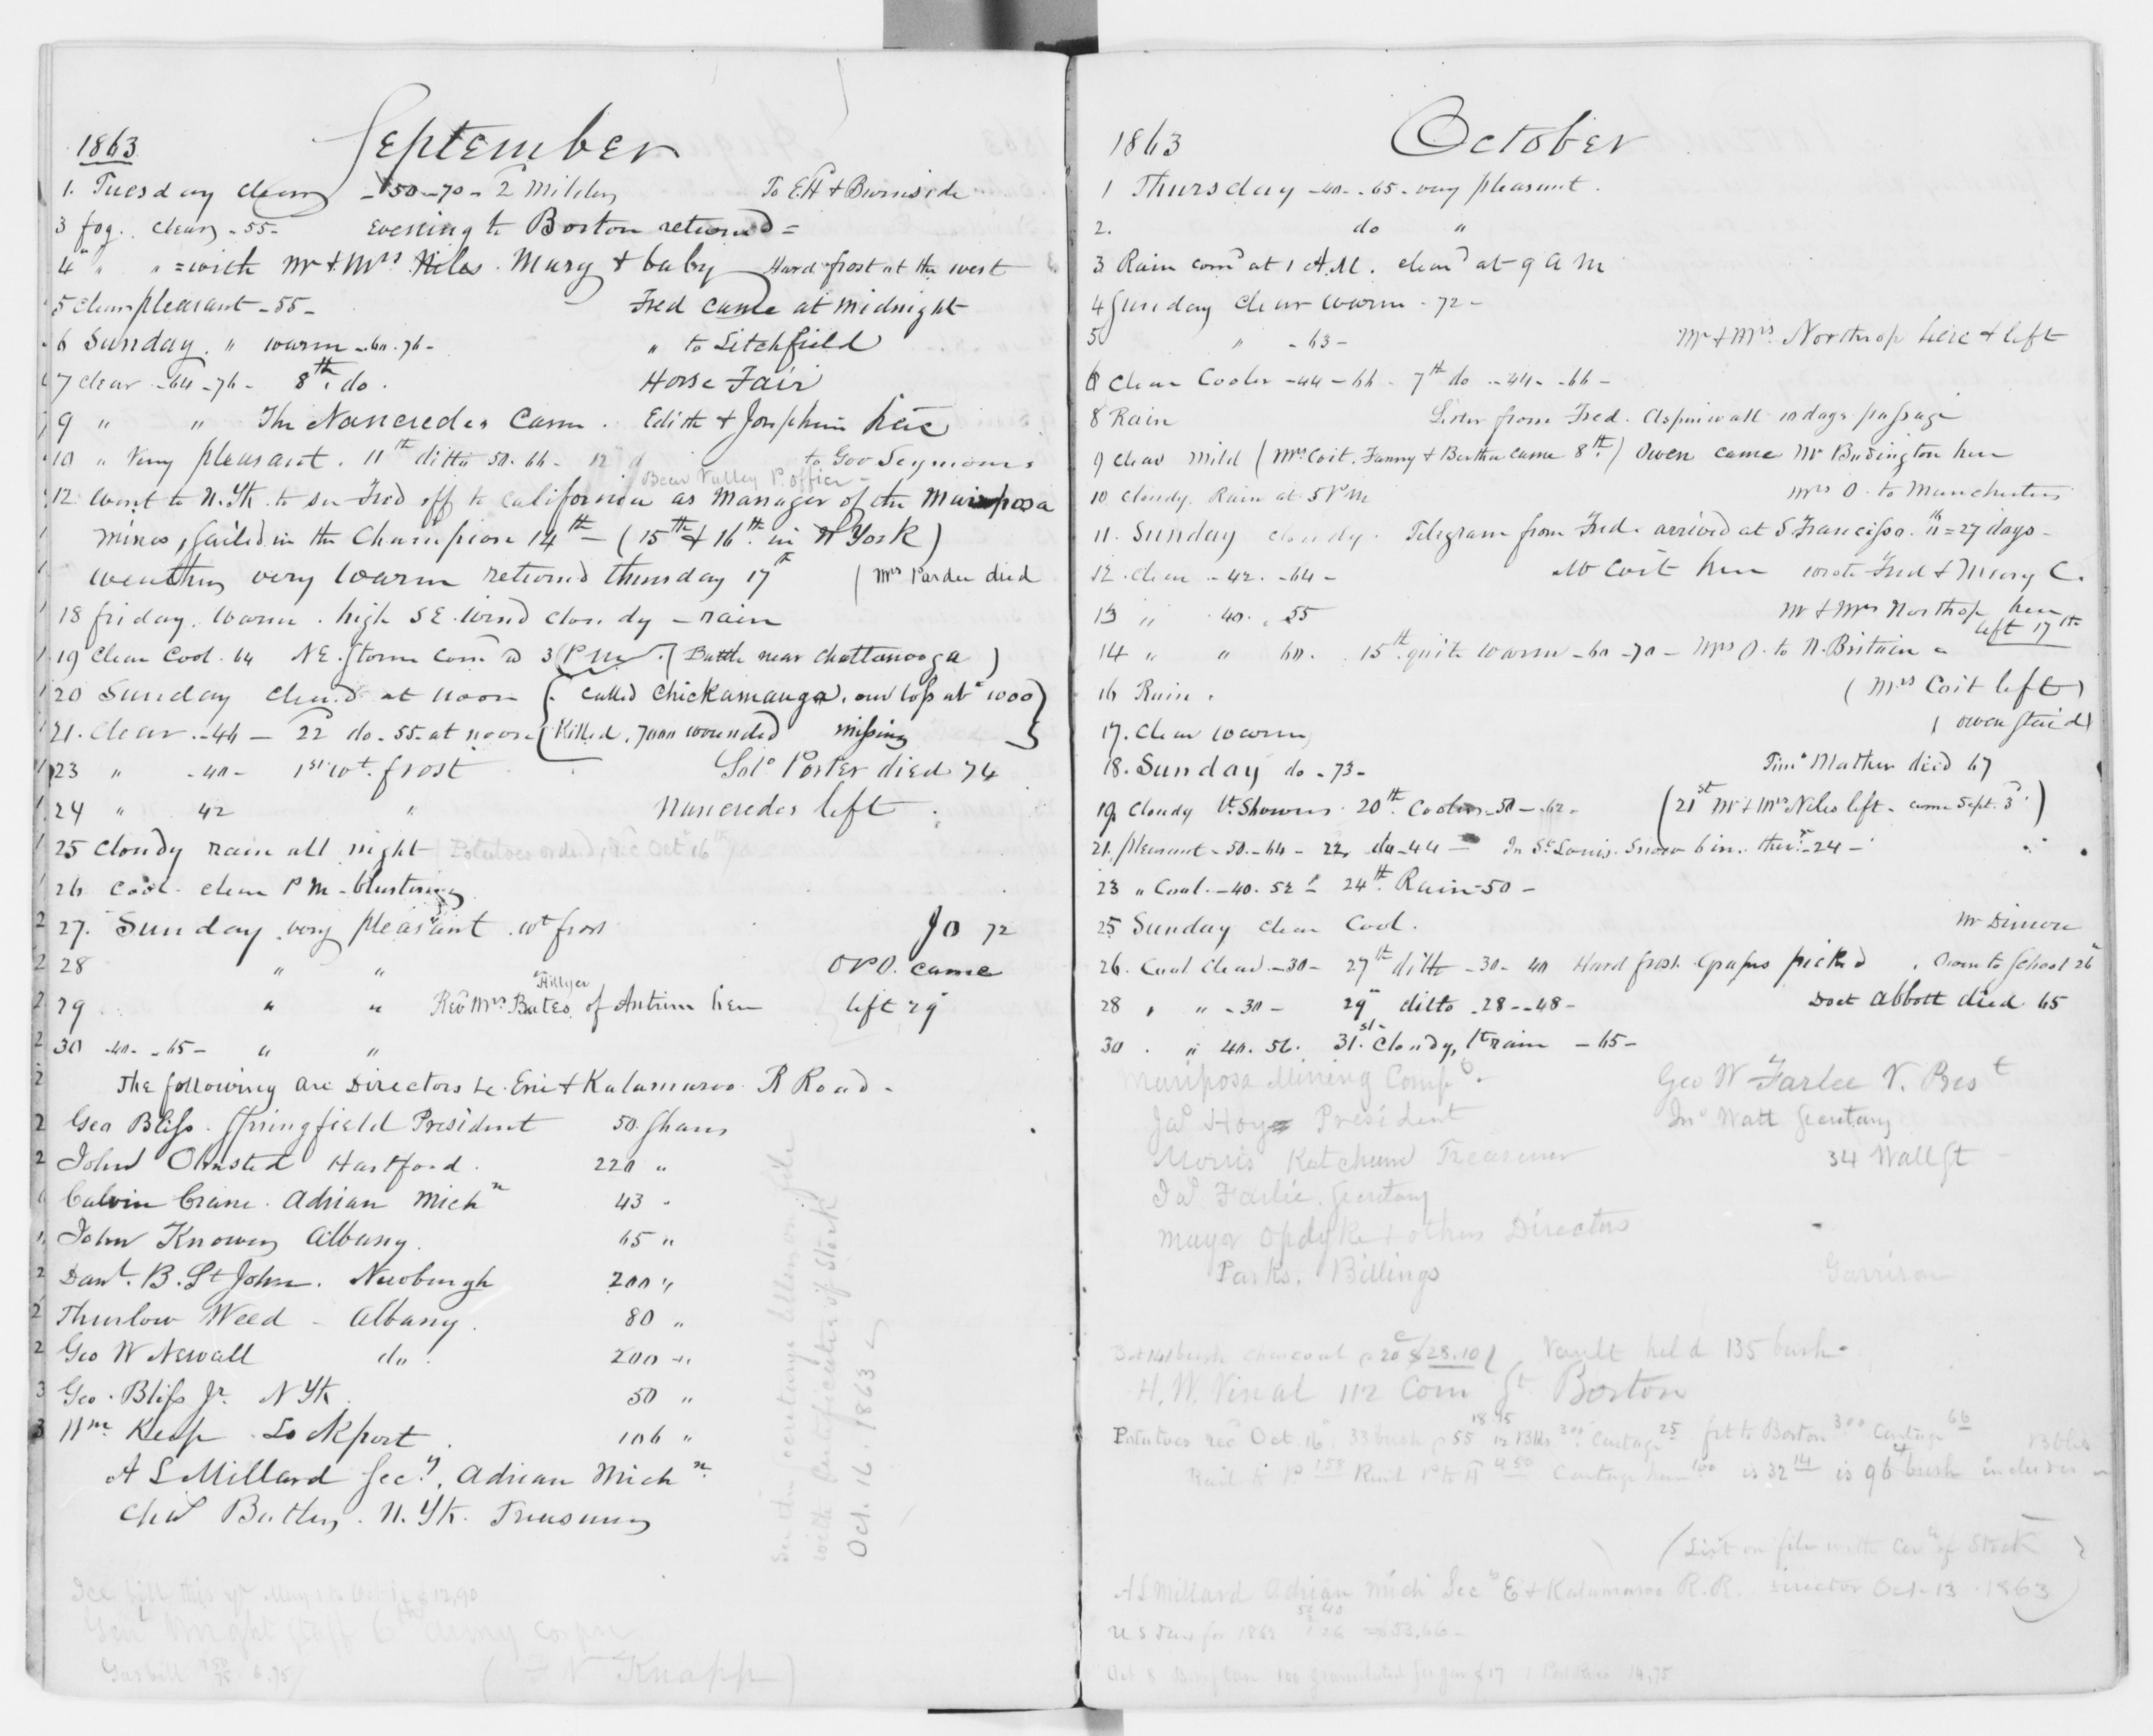 1863 September
1. Tuesday clear - 50 - 70 - 2 Milder To EH & Burnside
3 fog. clear - 55 - Evening to Boston returned =
4 " " = with Mr & Mrs Niles. Mary & baby Hard frost at the west
5 Clear pleasant - 55 - Fred came at midnight
6 Sunday. " warm - 60. 76 - " to Litchfield
7 clear - 64 - 76 - 8th. do. Horse Fair
9 " " The Nancredes Came. Edith & Josephine here
10 " Very pleasant. 11th ditto 50. 66 - 12 d to Gov Seymours
Bear Valley P. office -
12 Went to N. Yk. to see Fred off to California as manager of the Mariposa
mines, sailed in the Champion 14th - (15th & 16th in N York)
weather very warm returned thursday 17th (Mrs Pardee died
18 friday. warm. high SE. wind cloudy - rain
19 Clear Cool. 64 NE. storm com'd 3 P m. (Battle near Chattanooga)
20 Sunday clear'd at noon (called Chickamauga. our loss abt 1000
21. Clear - 46 - 22 do. 55 at noon (Killed, 7000 wounded missing
23 " - 40 - 1st wt. frost Solo Porter died 74
24 " 42 " Nancredes left
25 Cloudy rain all night Potatoes ordered, rec Oct 16th
26 Cool. clear P M - blustering
27. Sunday very pleasant. wt frost Jo 72
28 " " OPO. came
Hillyer
29 " " Revd Mrs Bates of Antrim here left 29
30 - 40 - - 65 - " "
The following are Directors Le. Erie & Kalamazoo R Road -
Geo Bliss. Springfield President 50. Shares
John Olmsted Hartford. 220 "
Calvin Crane. Adrian Michn 43 "
John Knower Albany. 65 "
Danl. B. St John. Newburgh 200 "
Thurlow Weed - Albany. 80 "
Geo W Newall do. 200 "
Geo. Bliss Jr. N Yk. 50 "
Wm. Keep. Lockport. 106 "
A L Millard Secy. Adrian Michn
Chas Butler. N. Yk. Treasurer
See the secretarys letter on file
with certificates of Stock
Oct. 16. 1863
Ice bill this yr May 1 to Oct 1 $12,90
Genl Wright staff 6th army corps
Gas bill 6.75 (F N Knapp)
1863 October
1 Thursday - 40 - - 65 - very pleasant.
2. do "
3 Rain com'd at 1 A.M. clear'd at 9 A M
4 Sunday clear warm - 72 -
5 " - 63 - Mr & Mrs. Northrop here & left
6 Clear Cooler - 44 - 66 - 7th do - 44 - - 66 -
8 Rain Letter from Fred. Aspinwall 10 days passage
9 clear mild (Mrs. Coit. Fanny & Bertha came 8th.) Owen came Mr Budington here
10. Cloudy. Rain at 5 P M Mrs O. to Manchester
11. Sunday cloudy. Telegram from Fred. arrived at S. Francisco. 11th = 27 days -
12. Clear - 42. - 64 - Mr Coit here wrote Fred & Mary C.
13 " 40. . 55 Mr & Mrs Northrop here
left 17th
14 " " 60. . 15th quite warm - 60 - 70 - Mrs O. to N. Britain
16 Rain. (Mrs Coit left)
(owen staid)
17. Clear warm
18. Sunday do - 73 - Timo Mather died 67
19. Cloudy lt. Showers 20th Cooler - 50 - 62 - (21st Mr & Mrs Niles left - came Sept. 3d.)
21. pleasant - 50. - 64 - 22. do - 44 - In St. Louis. Snow 6 in. ther. - 24 -
23 " Cool. - 40. 52 24th Rain - 50 -
25 Sunday clear Cool. Mr Dimon
26. Cool clear - 30 - 27th ditto - 30 - 40 Hard frost. Grapes picked. Owen to school 26
28 " " - 30 - 29" ditto - 28 - - 48 - Doct Abbott died 65
30 . " 40. 56. 31st. Cloudy, lt rain - 65 -
Mariposa Mining Compy. Geo W Farlee V. Prest
Jas Hoy President Jno Watt Secretary
Morris Ketchum Treasurer 34 Wall St
Jas Farlie. Secretary
Mayor Opdyke & others Directors
Parks. Billings Garrison
Bot 141 bush charcoal 20c $28.10 Vault held 135 bush.
H. W. Vinal 112 Com St. Boston
Potatoes rec Oct. 16, 33 bush 55 18.15 12 Bbls 300 Cartage 25 frt to Boston 300 Cartage 66
Rail to P. 158 Rail P to H 450 Cartage here 100 is 32 14 is 96 bush includes
(List on file with Cer of Stock)
A L Millard Adrian Mich Secy E & Kalamazoo R. R. Director Oct. 13. 1863
U S Tax for 1862 $53,66 -
100 granulated sugar $17 14,75